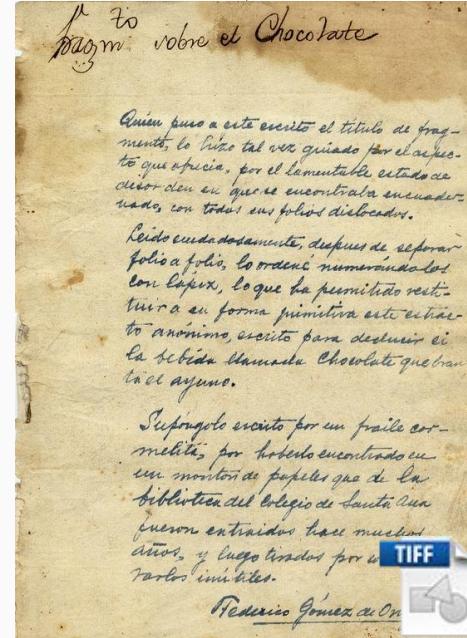 Fragm.to sobre el Chocolate
Quien puso a este escrito el titulo de frag-
mento, lo hizo tal vez guiado por el aspec-
to que ofrecia, por el lamentable estado de
desorden en que se encontraba encuader-
nado, con todos sus folios dislocados.
Leido cuidadosamente, despues de separar
folio a folio, lo ordené numerándolos
con lapiz, lo que ha permitido resti-
tuir a su forma primitiva este
anónimo, escrito para deducir si
la bebida llamada Chocolate quebran
ta el ayuno.
Supóngolo escrito por un fraile car-
melita, por haberlo encontrado en
un monton de papeles que de la
biblioteca del Colegio de Santa Ana
fueron extraidos hace muchos
años, y luego tirados por
rarlos inútiles.
Federico Gómez de
TIFF